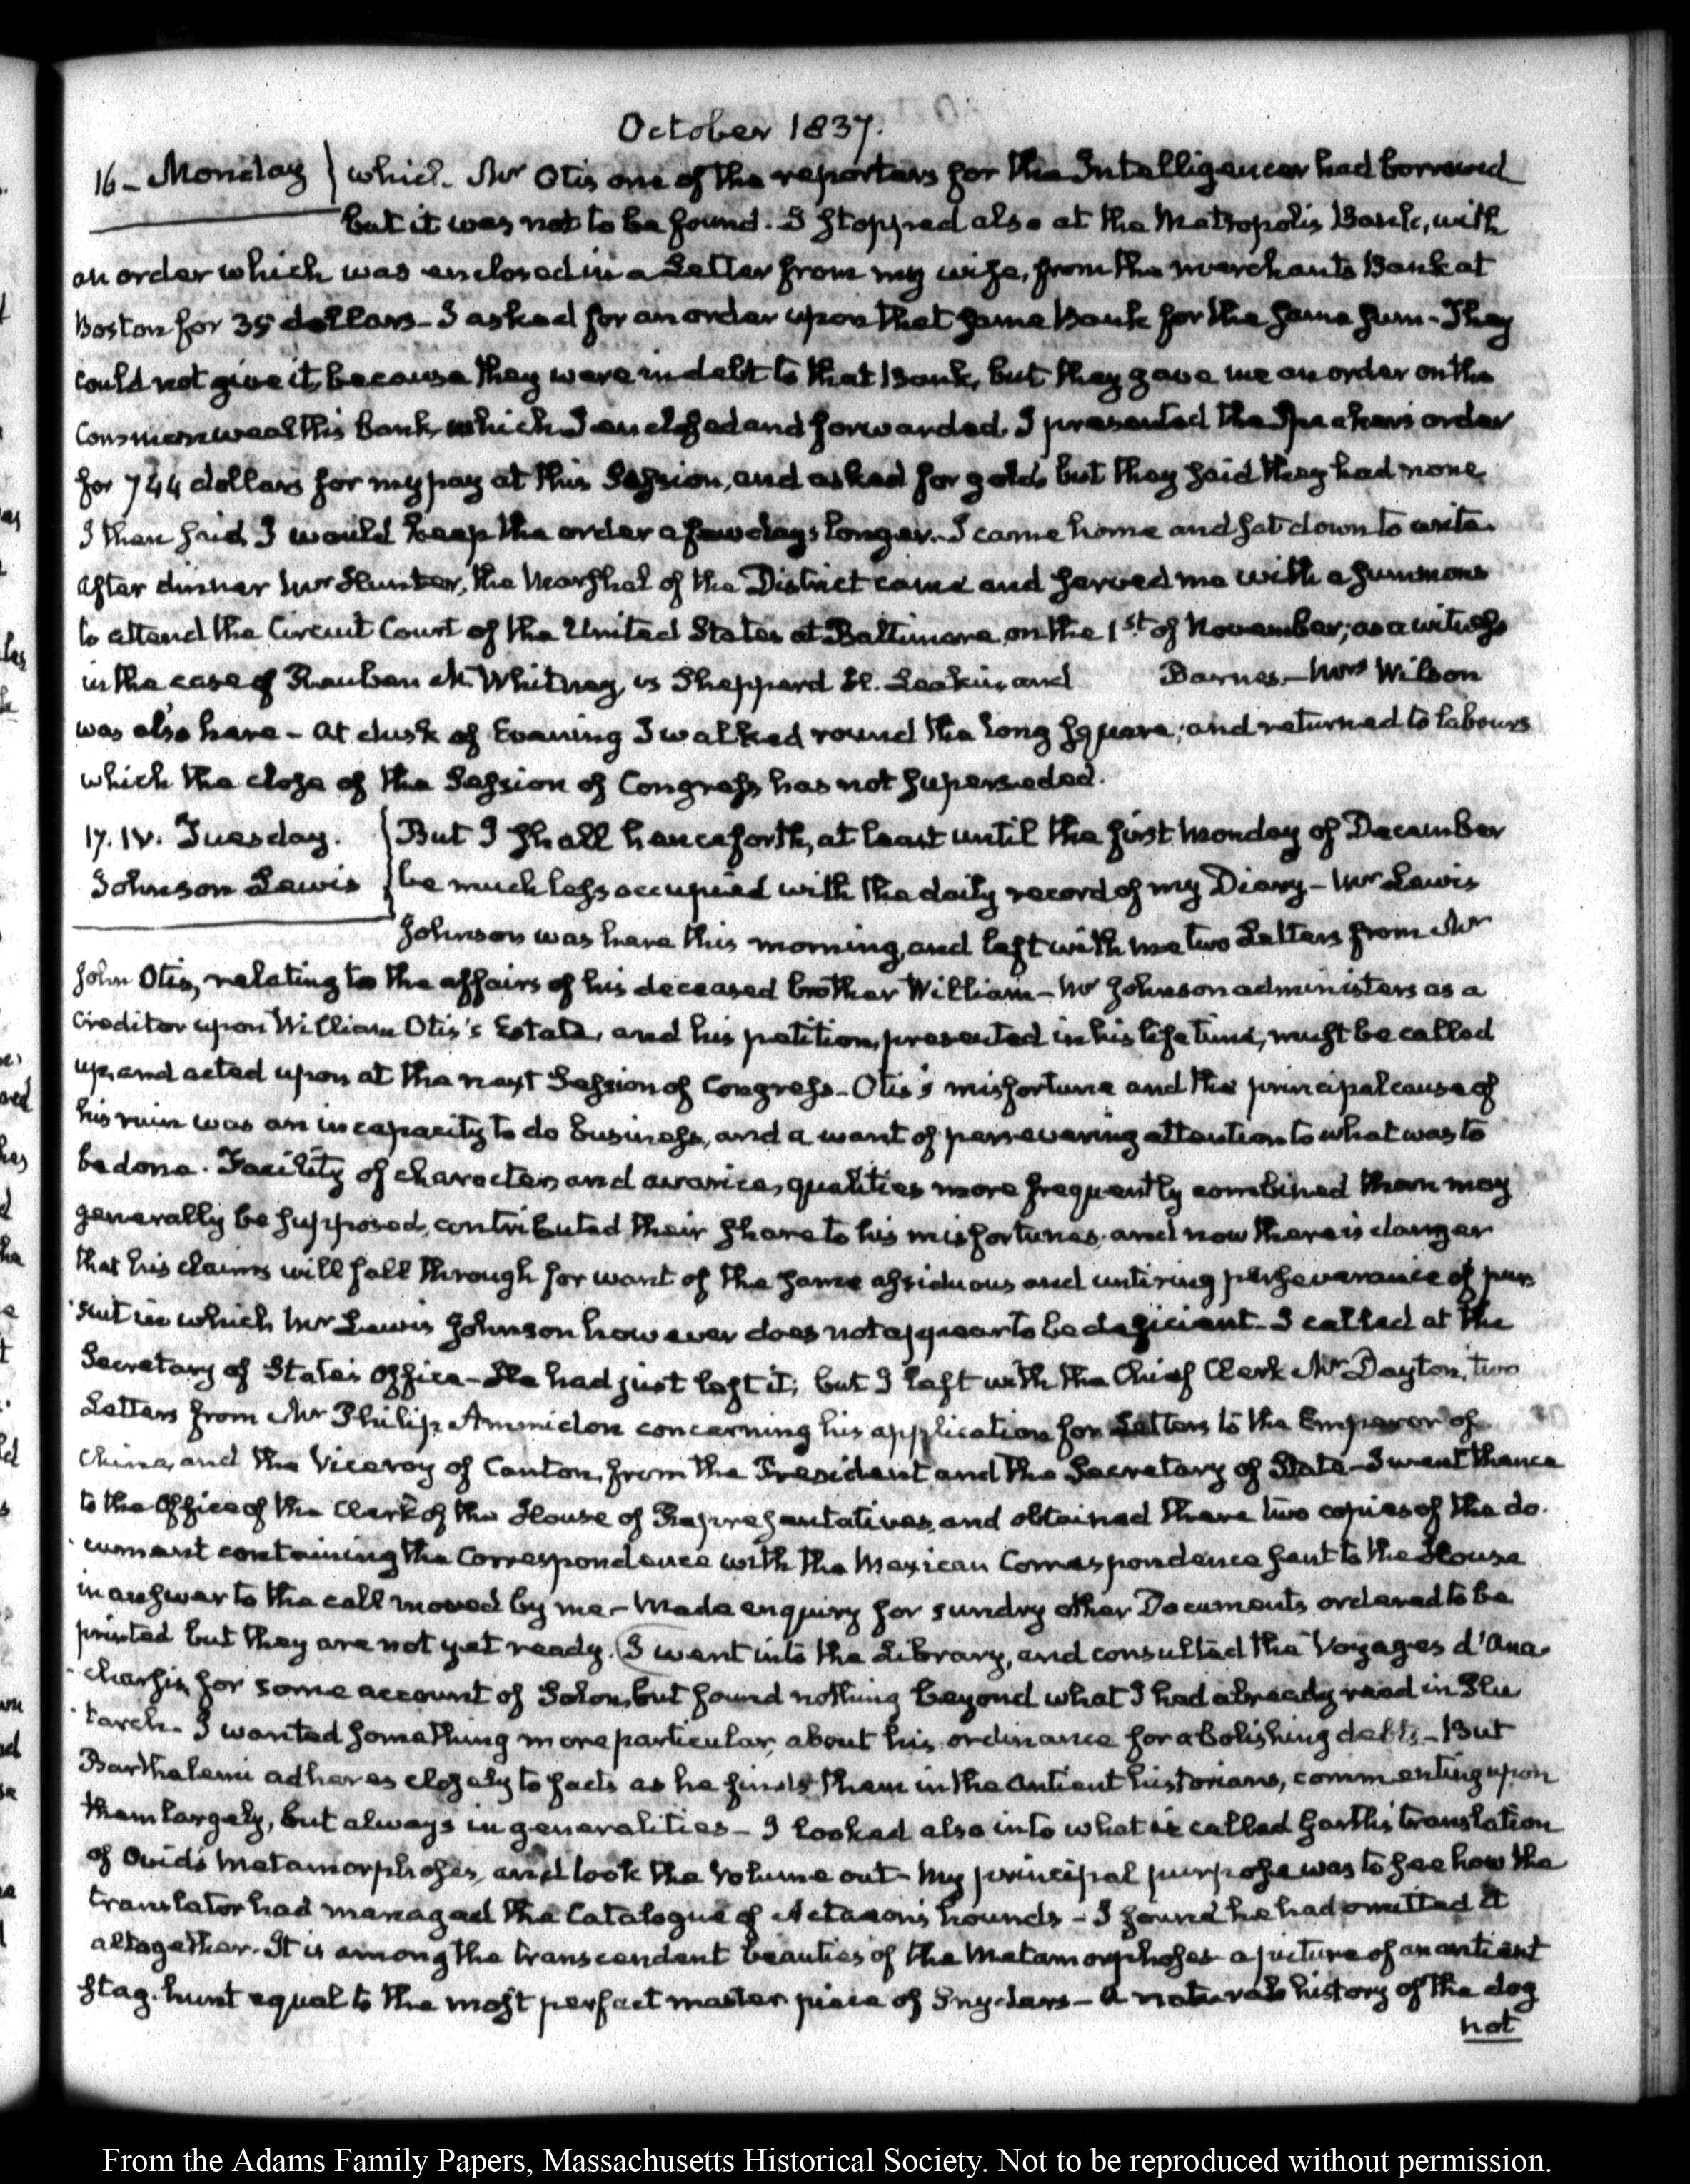 October 1837.
16 - Monday } which Mr Otis one of the reporters for the Intelligencer had borrowed
but it was not to be found. I stopped also at the Metropolis Bank, with
an order which was enclosed in a Letter from my wife, from the Merchants Bank at
Boston for 35 dollars - I asked for an order upon that same Bank for the same sum - They
could not give it, because they were in debt to that Bank, but they gave me an order on the
Commonwealths Bank, which I enclosed and forwarded. I presented the Speaker's order
for 744 dollars for my pay at this Session, and asked for gold, but they said they had none
I then said, I would keep the order a few days longer. I came home and sat down to write.
After dinner Mr Hunter, the Marshal of the District came and served me with a summons
to attend the Circuit Court of the United States at Baltimore on the 1st of November; as a witness
in the case of Reuben M. Whitney, vs Sheppard C. Leakin, and Barnes. - Mrs Wilson
was also here - At dusk of Evening I walked round the long square; and returned to labours
which the close of the Session of Congress has not superseded.
17. IV. Tuesday. { But I shall henceforth, at least until the first Monday of December
Johnson Lewis { be much less occupied with the daily record of my Diary - Mr Lewis
Johnson was here this morning, and left with me two Letters from Mr
John Otis, relating to the affairs of his deceased brother William - Mr Johnson administers as a
Creditor upon William Otis's Estate, and his petition, presented in his life time, must be called
up, and acted upon at the next Session of Congress - Otis's misfortune and the principal cause of
his ruin was an incapacity to do business, and a want of persevering attention to what was to
be done. Facility of character, and avarice, qualities more frequently combined than may
generally be supposed, contributed their share to his misfortunes, and now there is danger
that his claims will fall through for want of the same assiduous and untiring perseverance of pur
suit in which Mr Lewis Johnson however does not appear to be deficient - I called at the
Secretary of State's Office - He had just left it; but I left with the Chief Clerk Mr Dayton, two
Letters from Mr Philip Ammidon concerning his application for Letters to the Emperor of
China, and the Viceroy of Canton, from the President and the Secretary of State - I went thence
to the Office of the Clerk of the House of Representatives, and obtained there two copies of the do-
cument containing the Correspondence with the Mexican Correspondence sent to the House
in answer to the call moved by me - Made enquiry for sundry other Documents ordered to be
printed but they are not yet ready. I went into the Library, and consulted the Voyages d'Ana-
charsis, for some account of Solon, but found nothing beyond what I had already read in Plu-
tarch. I wanted something more particular, about his ordinance for abolishing debts - But
Barthelemi adheres closely to facts as he finds them in the antient historians, commenting upon
them largely, but always in generalities - I looked also into what is called Garth's translation
of Ovid's Metamorphoses, and took the Volume out - My principal purpose was to see how the
translator had managed the Catalogue of Actaeon's hounds - I found he had omitted it
altogether. It is among the transcendent beauties of the Metamorphoses - a picture of an antient
stag-hunt equal to the most perfect master piece of Snyders - A natural history of the dog
not
From the Adams Family Papers, Massachusetts Historical Society. Not to be reproduced without permission.